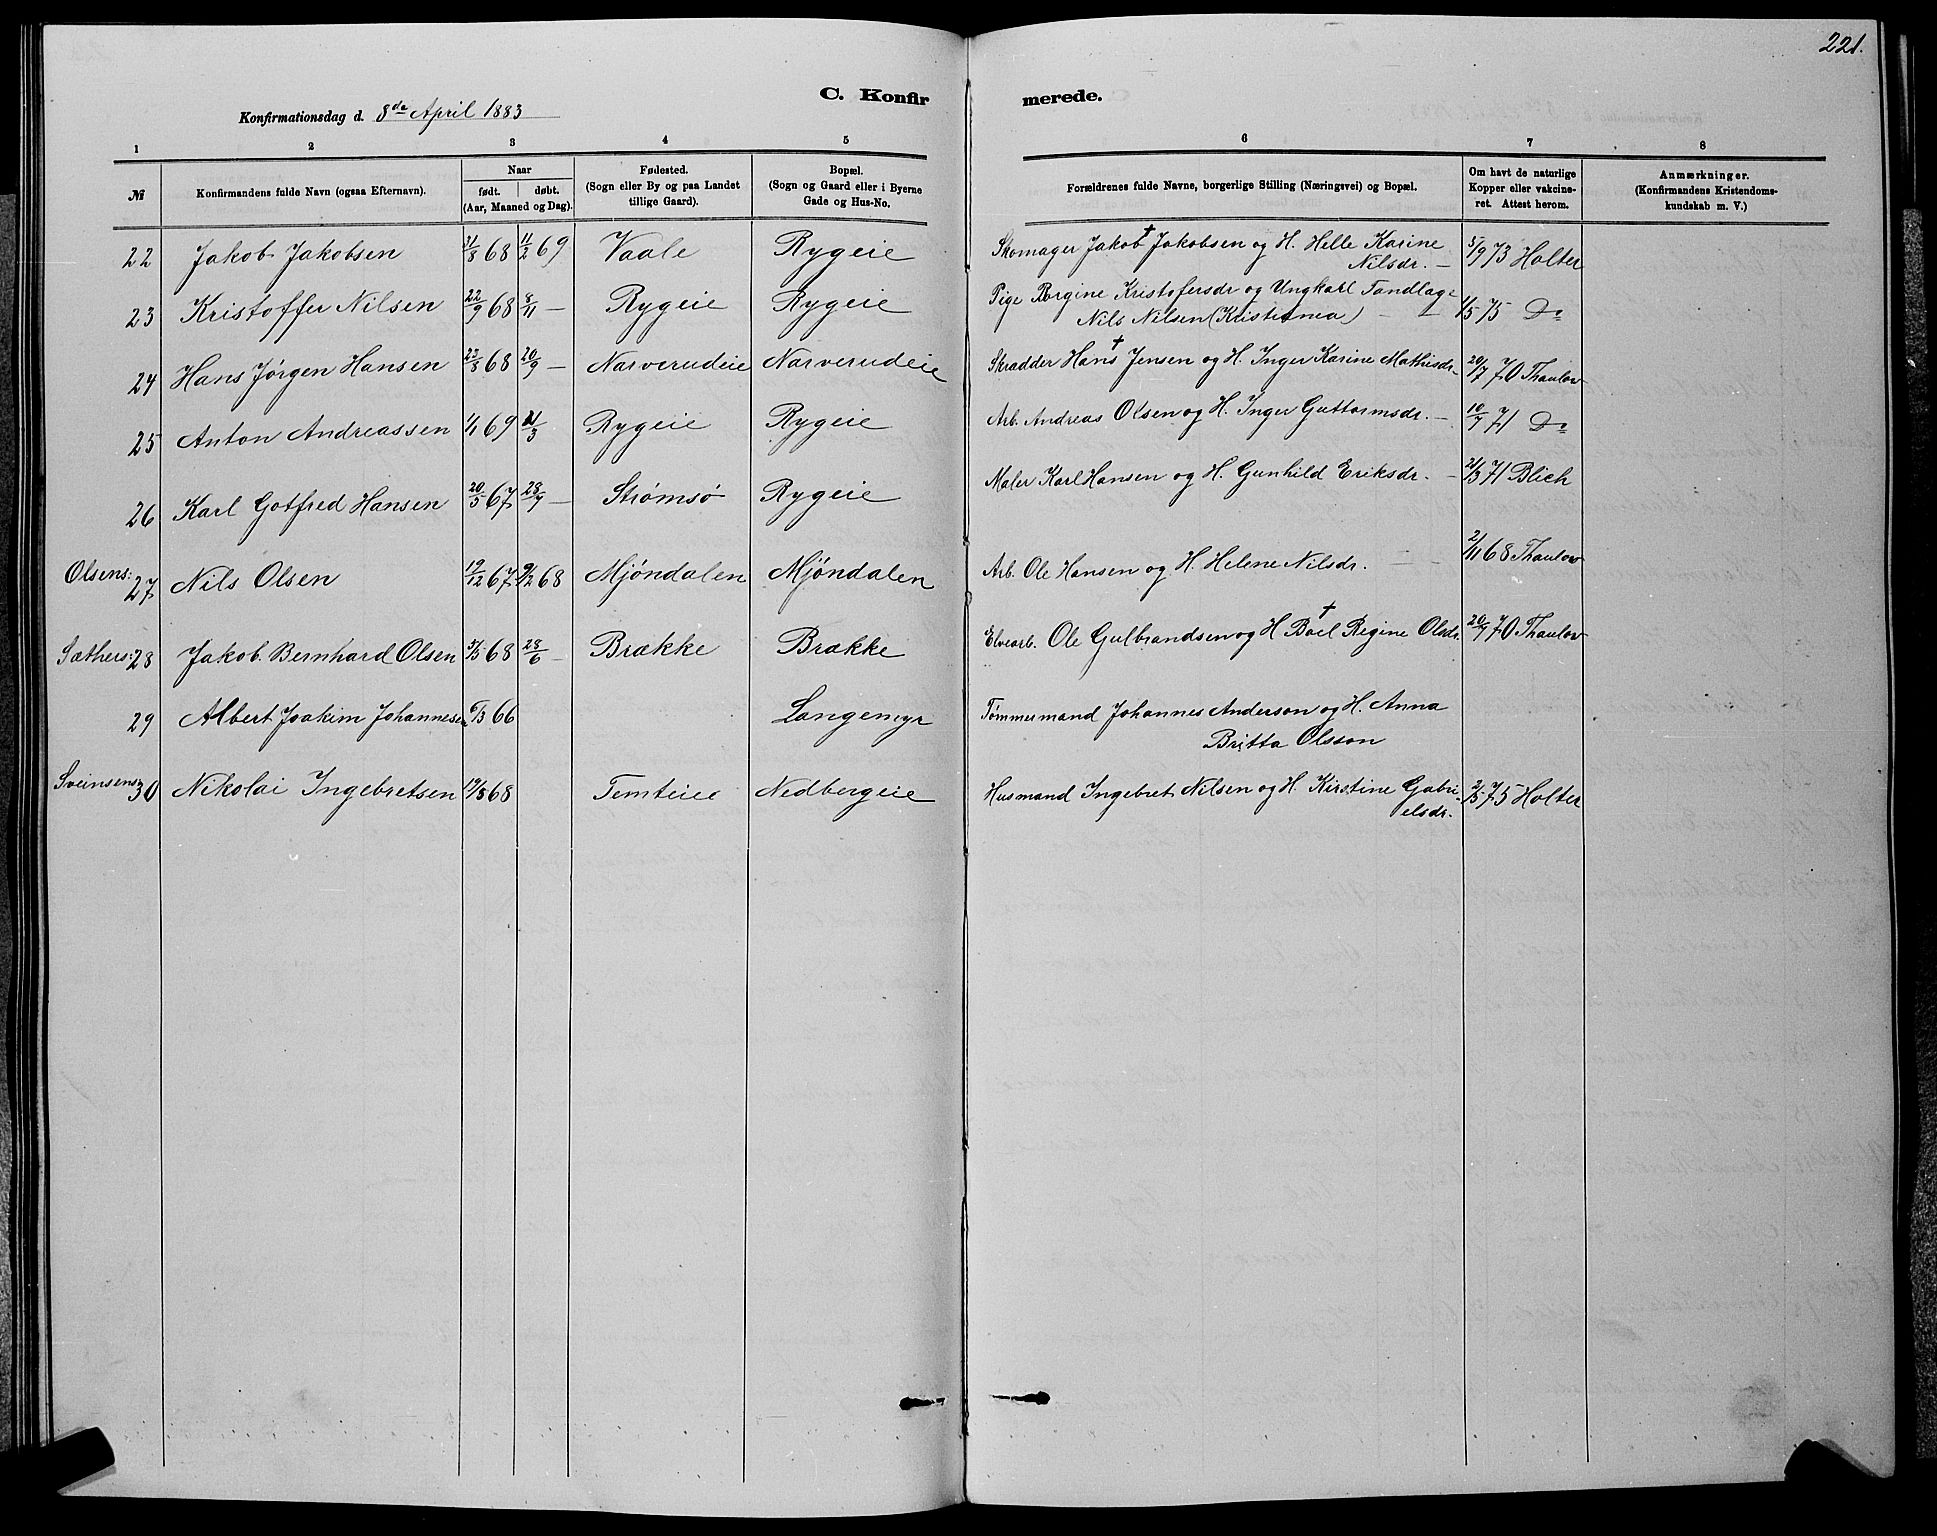 221.
C. Konfirmerede.
Konfirmationsdag d. 8de April 1883
1 2 3 4 5 6 7 8
№ Konfirmandens fulde Navn (ogsaa Efternavn). Naar født. døbt. (Aar, Maaned og Dag). Fødested. (Sogn eller By og paa Landet tillige Gaard). Bopæl. (Sogn og Gaard eller i Byerne Gade og Hus-No. Forældrenes fulde Navne, borgerlige Stilling (Næringsvei) og Bopæl. Om havt de naturlige Kopper eller vakcineret. Attest herom. Anmærkninger. (Konfirmandens Kristendomskundskab m. V.)
22 Jakob Jakobsen 31/8 68 11/2 69 Vaale Rygeie Skomager Jakob † Jakobsen og H. Helle Karine 5/9 73 Holter
Nilsdr. —
23 Kristoffer Nilsen 22/9 68 8/11 — Rygeie Rygeie Pige Kristofersdr og Ungkarl Tandlæge
Nils Nilsen (Kristiania) — 1/5 75 Do
24 Hans Jørgen Hansen 23/8 68 20/9 — Narverudeie Narverudeie Skradder Hans † Jensen og H. Inger Karine Mathisdr — 20/7 70 Thaulow
25 Anton Andreassen 1/1 69 21/3 Rygeie Rygeie Arb. Andreas Olsen og H. Inger Guttormsdr. — 10/7 71 Do
26 Karl Gotfred Hansen 20/5 67 28/7 — Strømsø Rygeie Maler Karl Hansen og H. Gunhild Eriksdr. — 21/3 71 Blich
Olsens: 27 Nils Olsen 19/12 67 9/2 68 Mjøndalen Mjøndalen Arb. Ole Hansen og H. Helene Nilsdr. — 2/11 68 Thaulow
Sæthers: 28 Jakob Bernhard Olsen 5/5 68 28/6 — Brække Brække Elvearb. Ole Gulbrandsen og H Boel † Regine Olsdr. 20/7 70 Thaulow
29 Albert Joakim Johannesen 6/3 66 Langemyr Tømmermand Johannes Anderson og H. Anna
Britta Olsson
Sveinsens 30 Nikolai Ingebretsen 19/8 68 Temteeie Nedbergeie Husmand Ingebret Nilsen og H. Kirstine Gabri- 2/5 75 Holter
elsdr.